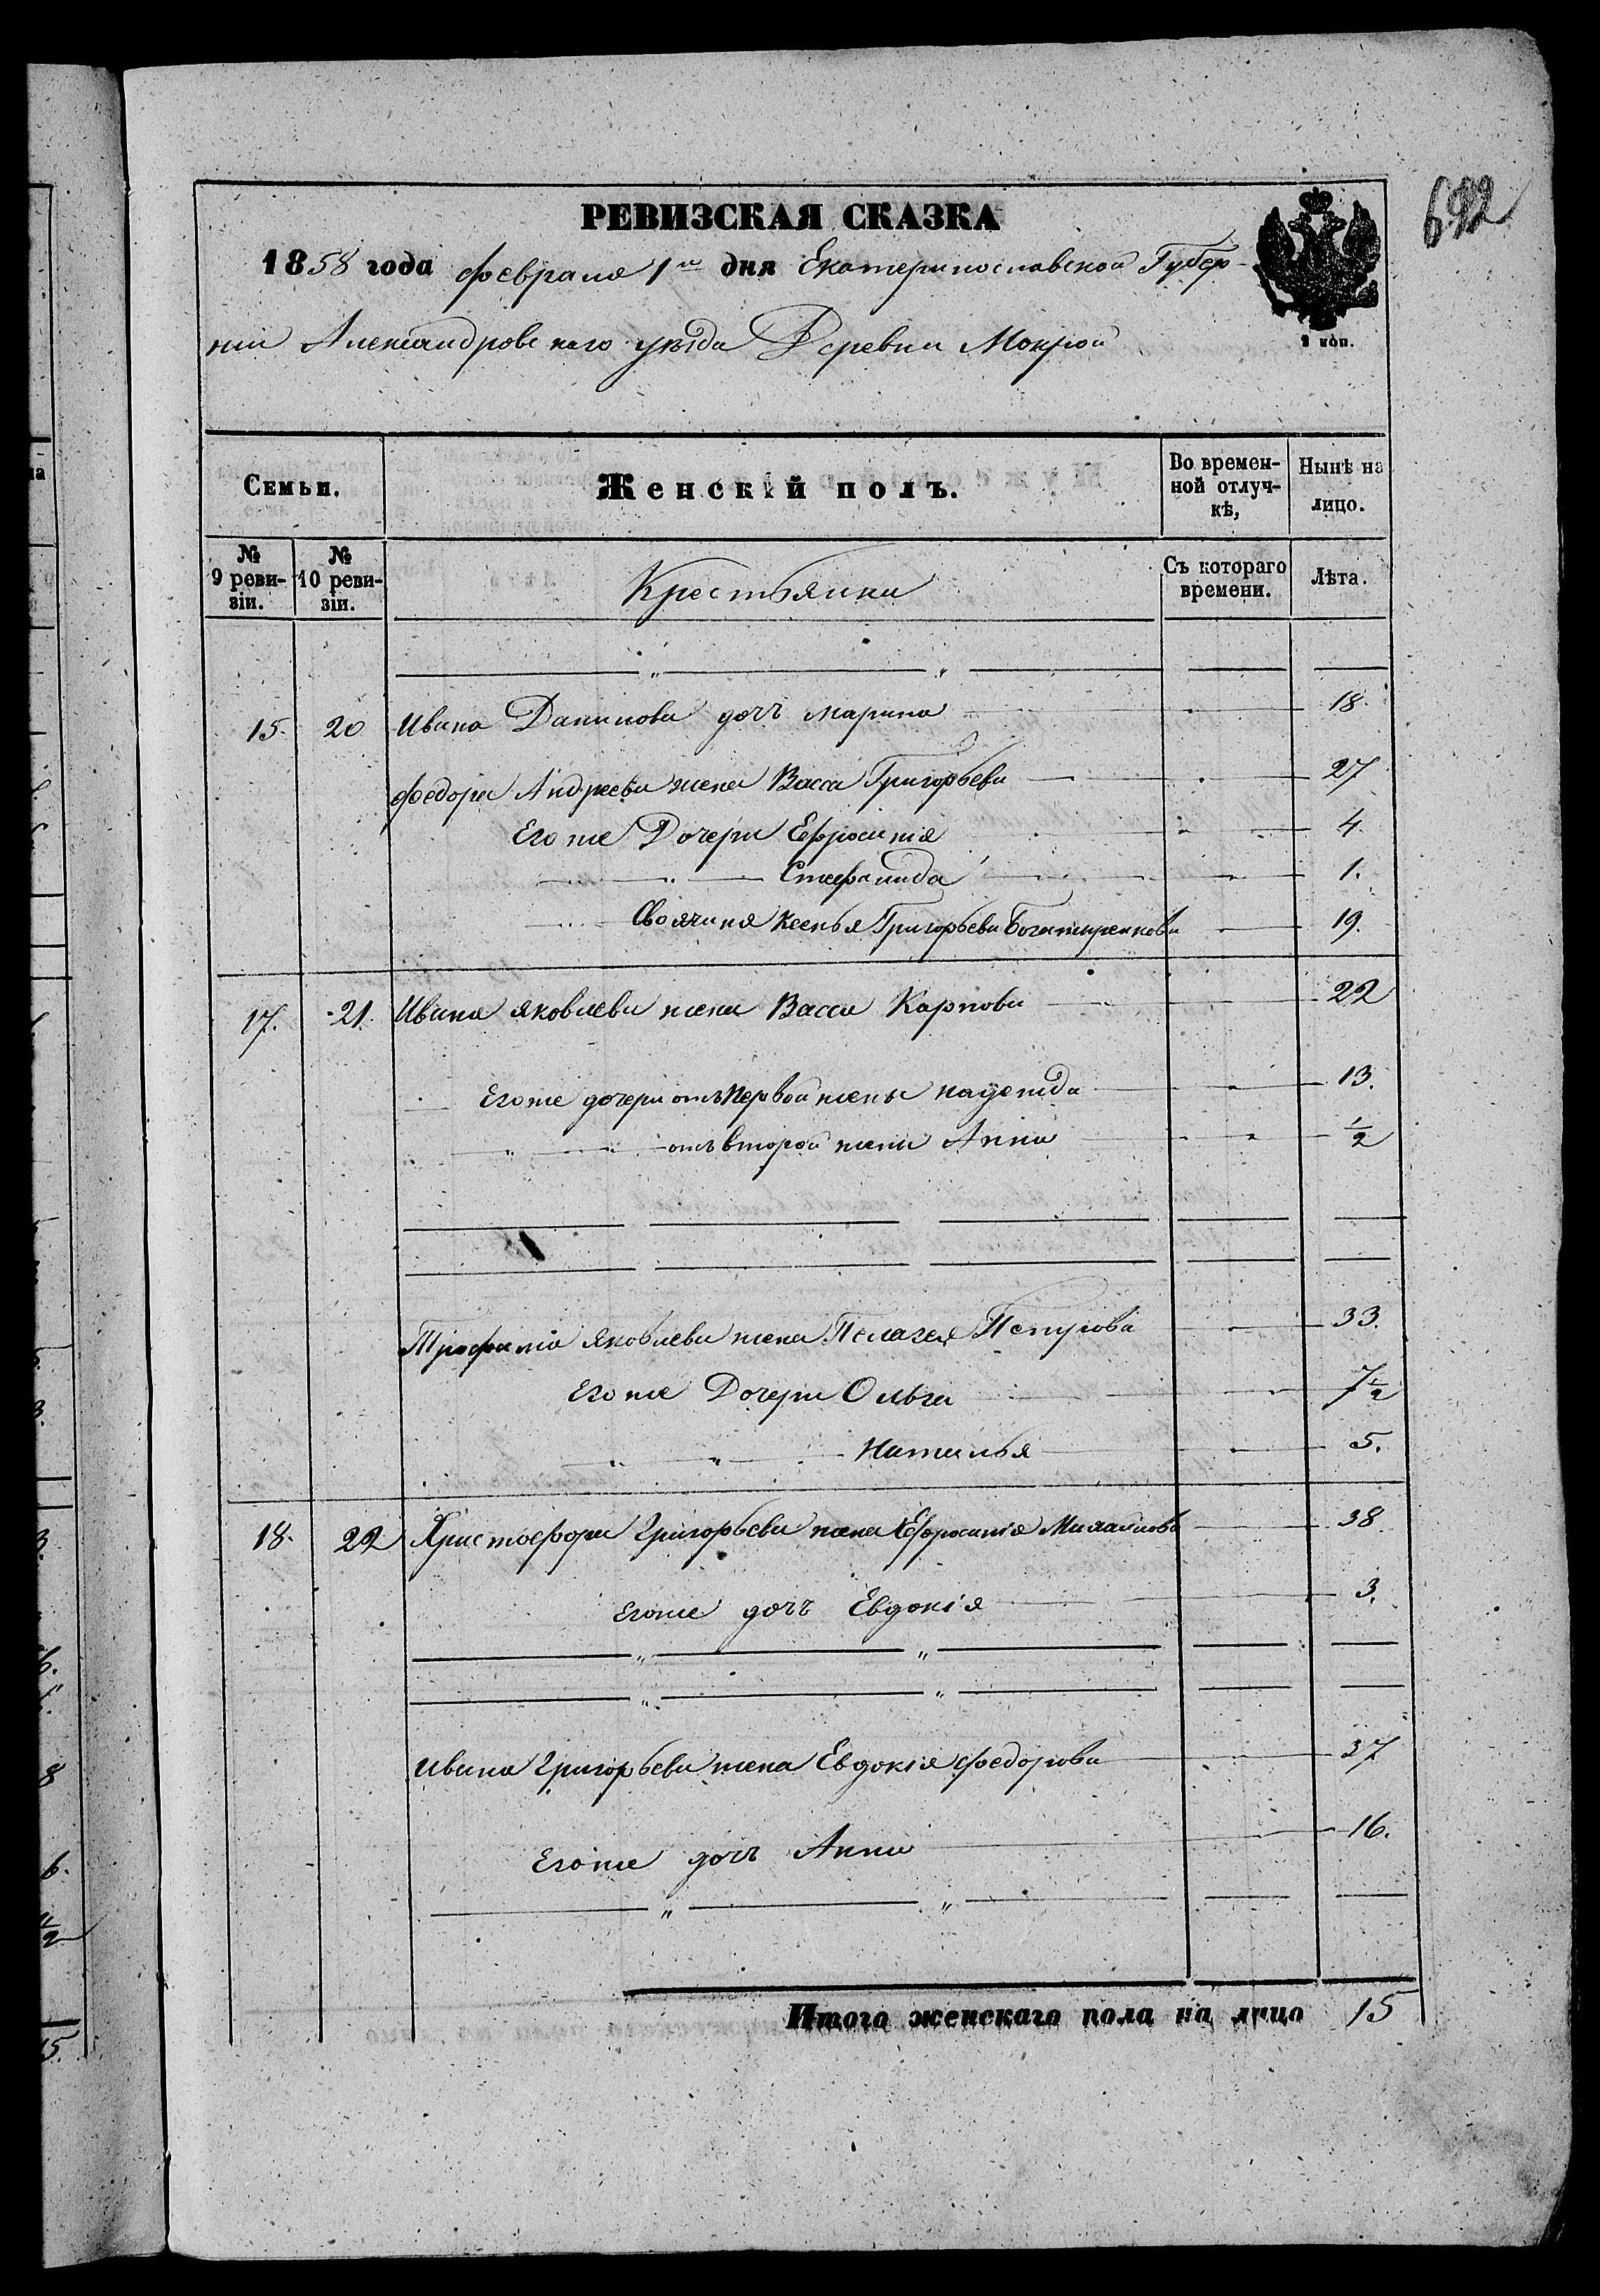 692
РЕВИЗСКАЯ СКАЗКА
1858 года Февраля 1го дня Екатеринославской Губер-
ніи Александровскаго уѣзда Деревни Мокрой
2 коп.
Семьи.
Женскій полъ.
Во времен-
ной отлуч-
кѣ,
Нынѣ на
лицо.
№
9 реви-
зіи.
№
10 реви-
зіи.
Крестьянки
Съ котораго
времени.
Лѣта.
15. 20 Ивана Данилова дочъ Марина 18.
Федора Андреева жена Васса Григорьева 27
Его же Дочери Ефросинія 4.
" Стефанида 1.
Своячиня Ксенья Григорьева Богатиренкова 19.
17. 21. Ивана Яковлева жена Васса Карпова 22
Егоже дочери отъ первой жены Надежда 13.
" отъ второй жени Анна 1/2
Трофима Яковлева жена Пелагея Петрова 33.
Егоже Дочери Ольга 7 1/2
" " Наталья 5.
18. 22 Христофора Григорьева жена Ефросинія Михайлова 38
Егоже дочъ Евдокія 3.
Ивана Григорьева жена Евдокія Федорова 37
Егоже дочъ Анна 16.
Итого женскаго пола на лицо 15